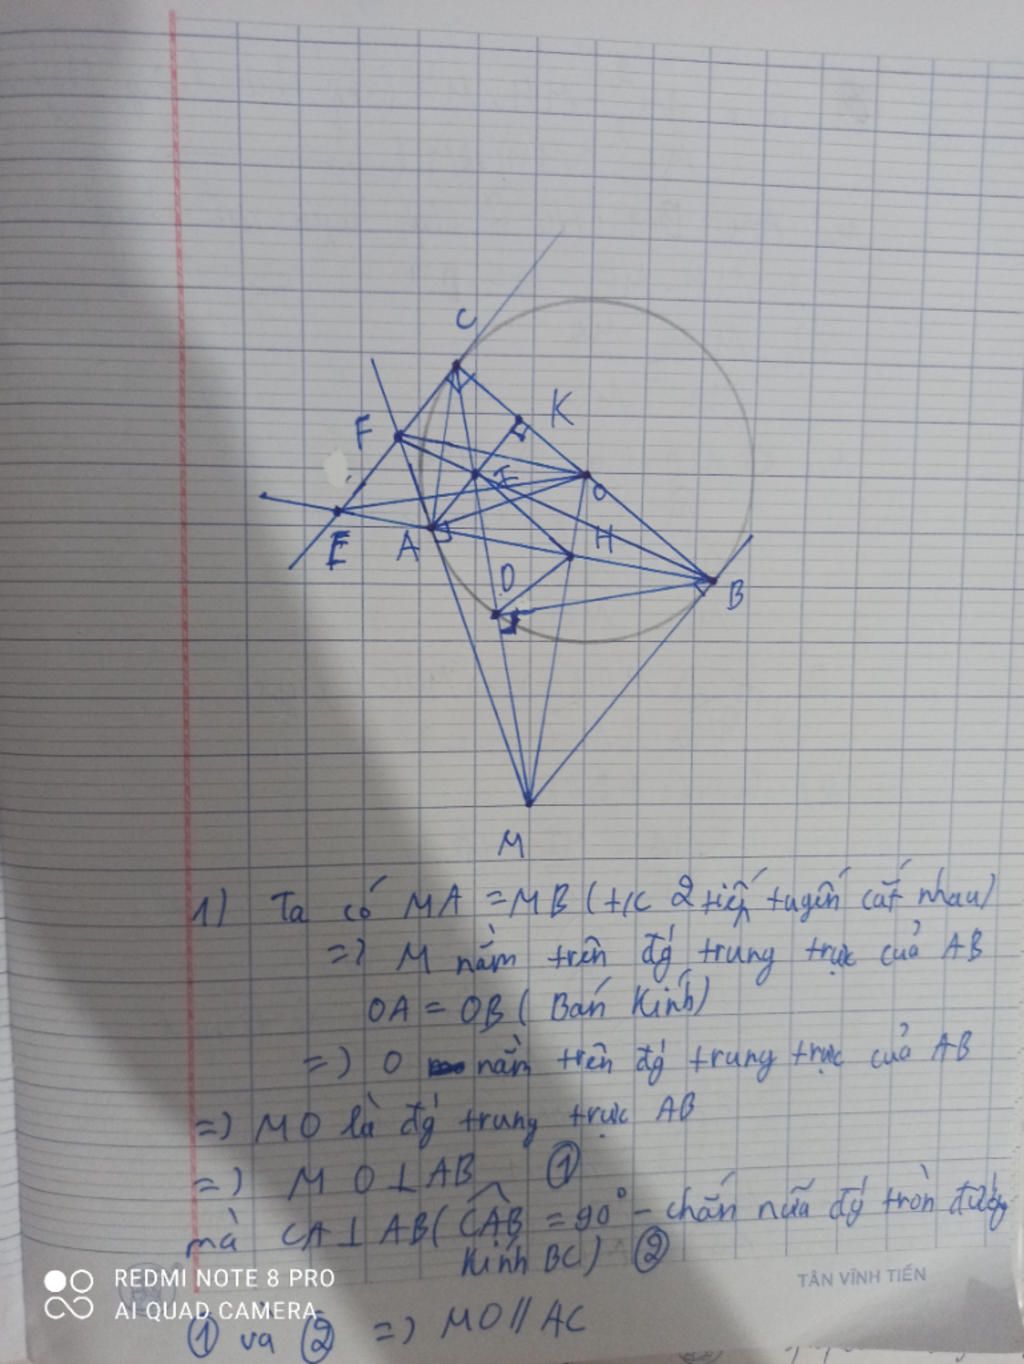 C
K
F
I
O
E
A
H
D
B
M
1) Ta có MA = MB (t/c 2 tiếp tuyến cắt nhau)
=> M nằm trên đg trung trực của AB
OA = OB (Bán Kính)
=> O nằm trên đg trung trực của AB
=> MO là đg trung trực AB
=> MO ⊥ AB ①
mà CA ⊥ AB (CAB = 90° - chắn nửa đg tròn đường
Kính BC) ②
① và ② => MO // AC
TÂN VĨNH TIẾN
REDMI NOTE 8 PRO
AI QUAD CAMERA